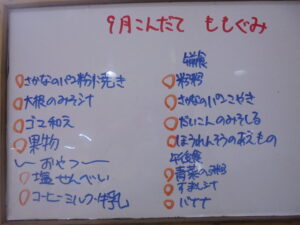 9月こんだて ももぐみ
さかなのパン粉やき
大根のみそ汁
ゴマ和え
果物
〜おやつ〜
塩せんべい
コーヒーミルク・牛乳
午前食
粉粥
さかなのパンこやき
だいこんのみそしる
ほうれんそうのあえもの
午後食
青菜のお粥
すまし汁
バナナ